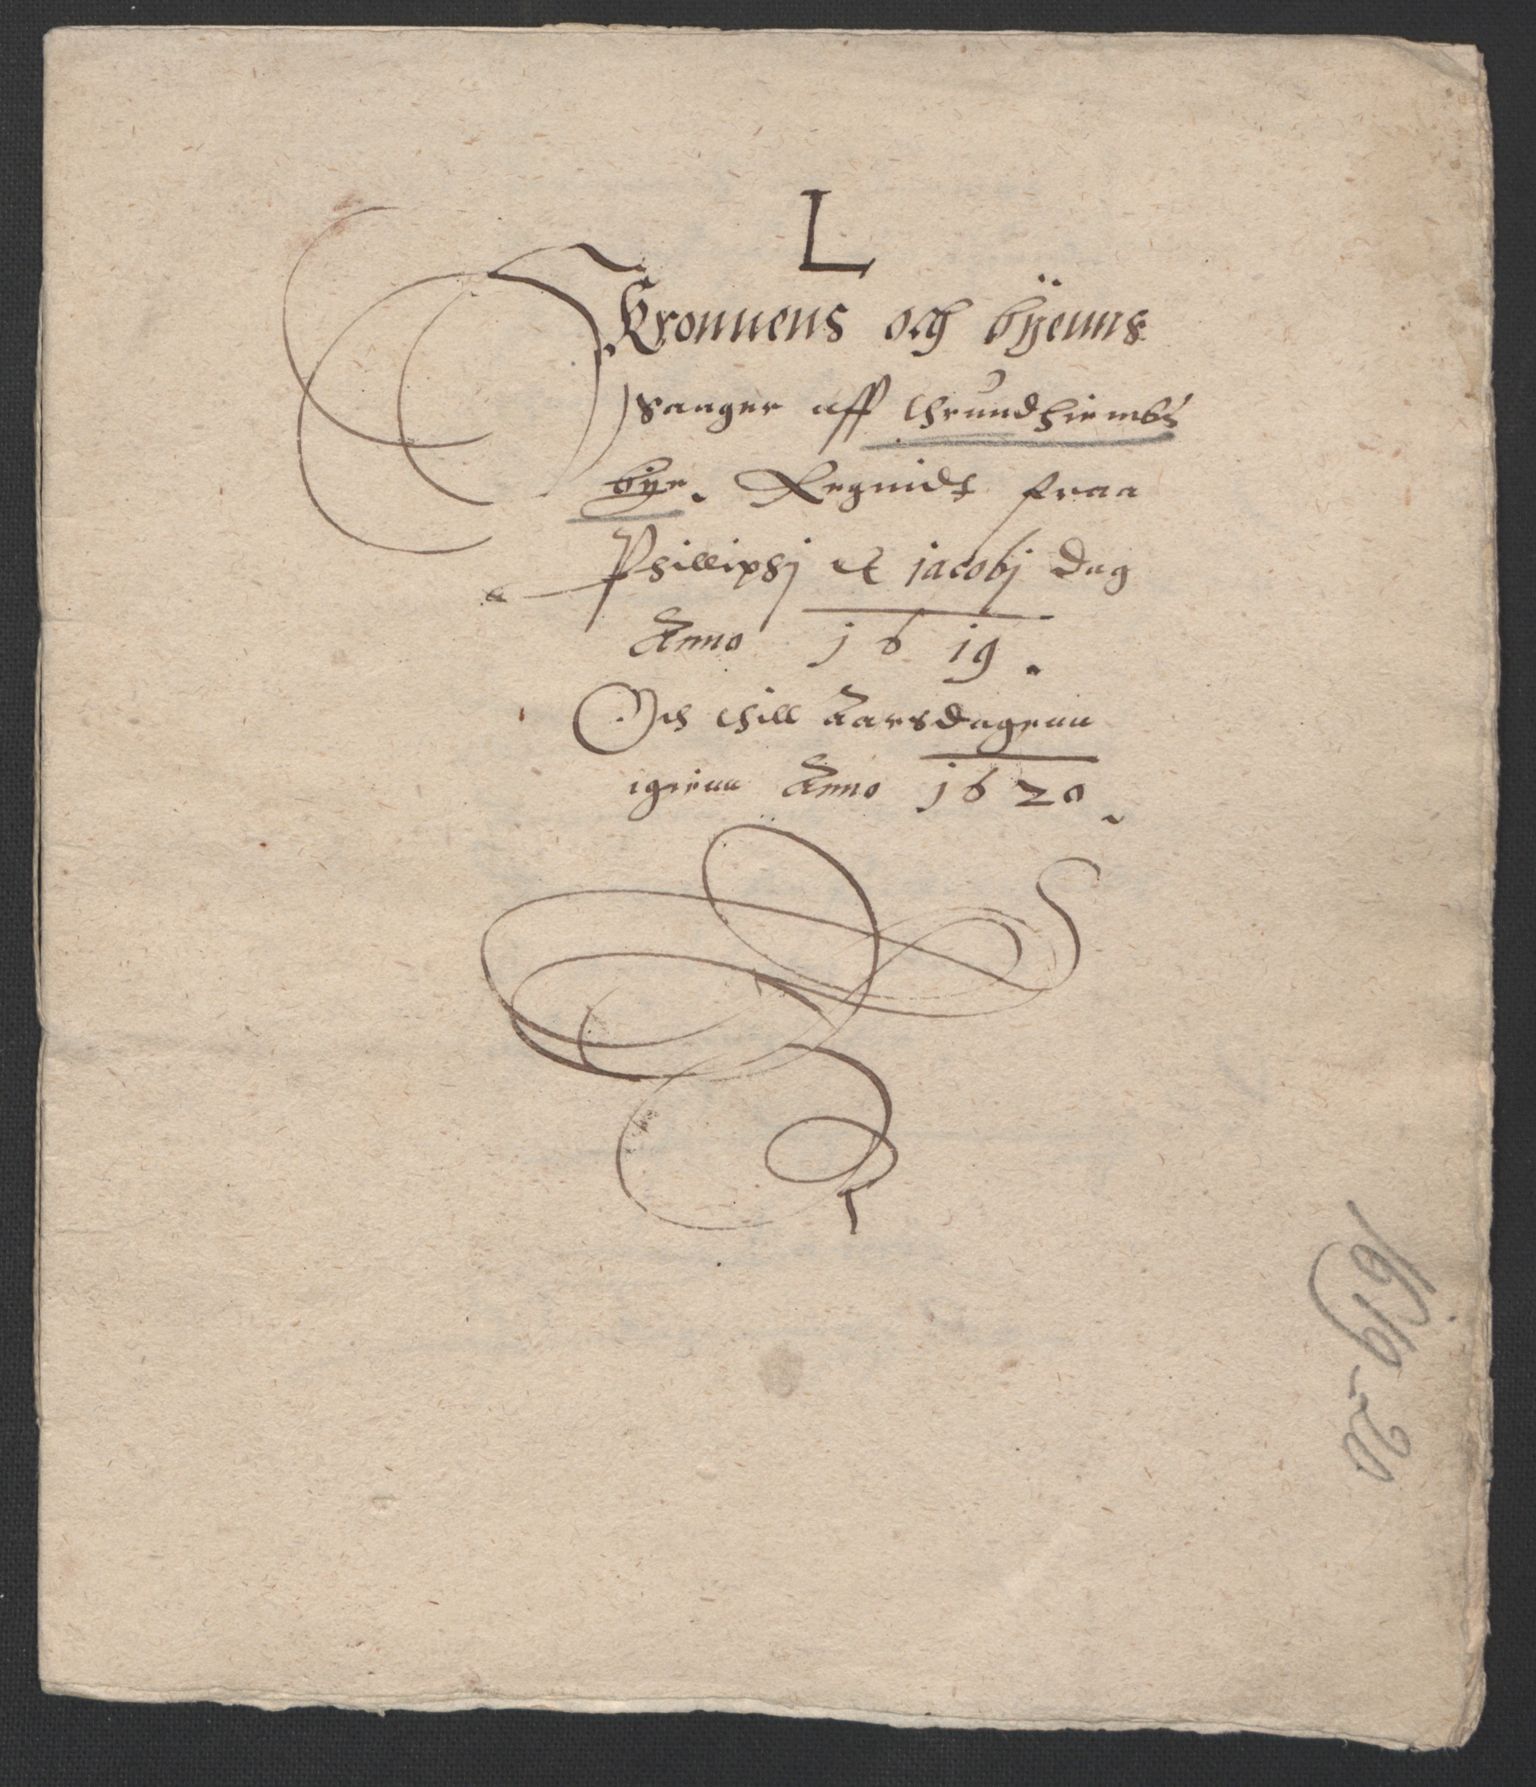 L
Kronnens och byenns
saager aff thrundhiembs
bye. Regnidt fraa
Philliphj et jacobj dag
Anno 1619.
Och thill Aarsdagenn
igienn Anno 1620
1619-20